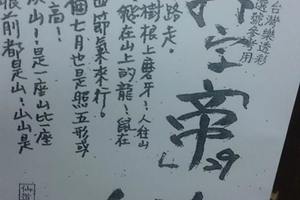 台灣樂透彩
選號參考用
空帝
L29
路走。
樹根上磨牙!、人住山
在山上的龍!、鼠在
節氣來行。
個七月也是照五形或
高!
山!、是一座山比一座
眼前都是山!、山山是